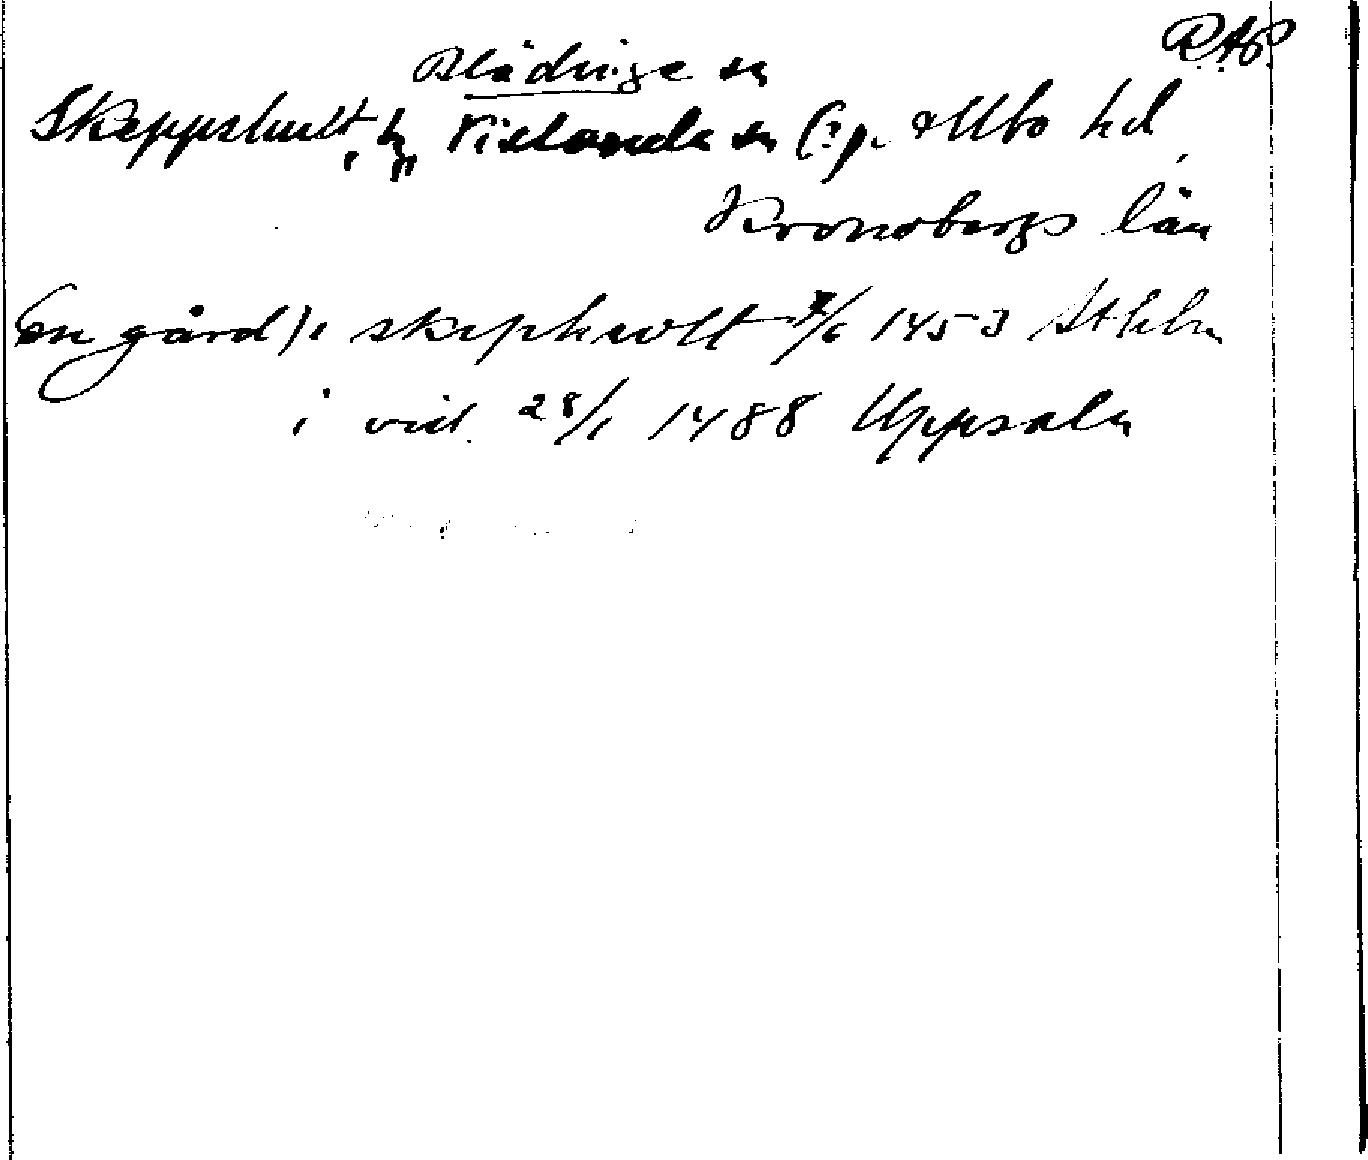 RAP
Blädinge sn
Skeppshult, h, Vislanda sn (?), Allbo hd,
Kronobergs län
(en gård) i skephwlt 7/6 1453 Sthlm
i vid. 28/1 1488 Uppsala